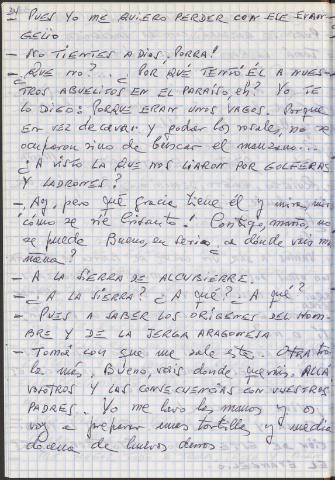 - PUES YO ME QUIERO PERDER CON ESE EVAN-
GELIO
- NO TIENTES A DIOS, PORRA!
- ¿QUE NO?... ¿POR QUÉ TENTÓ ÉL A NUES-
TROS ABUELITOS EN EL PARAÍSO, eh? YO TE
LO DIGO: PORQUE ERAN UNOS VAGOS. Porque
EN VEZ de cavar y podar los rosales, no se
ocuparon sino de buscar el manzano...
¿A VISTO LA QUE NOS LIARON POR GOLFERAS
Y LADRONES?
- Ay, pero qué gracia tiene él y mira, mira
cómo se ríe Crisanto! Contigo, maño, no
se puede Bueno, en serio, ¿a dónde vais ma
ñana?
- A LA SIERRA DE ALCUBIERRE.
- ¿A LA SIERRA? ¿A qué? ¿A qué?
- PUES A SABER LOS ORÍGENES DEL HOM-
BRE Y DE LA JERGA ARAGONESA
- Tomá con que me sale éste. OTRA
la más. Bueno, vais donde queráis. ALLÁ
VOSOTROS Y LAS CONSECUENCIAS CON VUESTROS
PADRES. Yo me lavo las manos y os
voy a preparar unas tortillas y media
docena de huevos duros